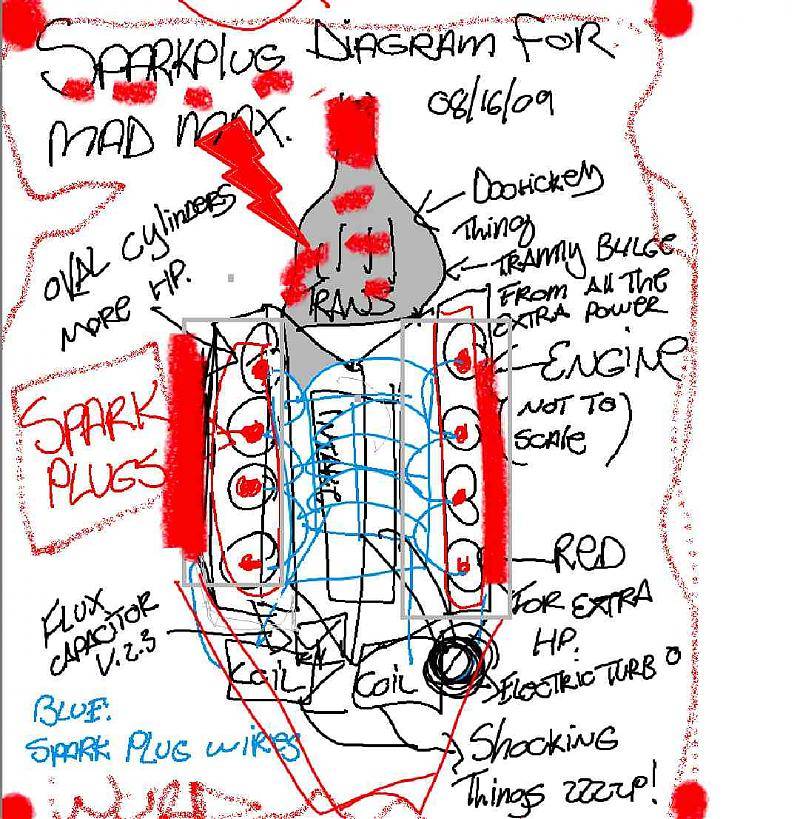 SPARKPLUG DIAGRAM FOR
MAD MAX.
08/16/09
DOOHICKEY
Thing
OVAL Cylinders
MORE HP.
TRANNY BULGE
FROM All The
EXTRA POWER
TRANS
ENGINE
(NOT TO
SCALE)
SPARK
PLUGS
INTAKE
RED
FOR EXTRA
HP.
FLUX
CAPACITOR
V.2.3
ELECTRIC TURBO
COIL
COIL
BLUE:
SPARK PLUG WIRES
Shocking
Things ZZZZP!